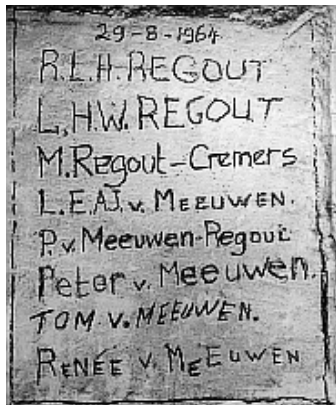 29-8-1964
R.L.H.REGOUT
L.H.W.REGOUT
M.Regout-Cremers
L.E.A.J.v.MEEUWEN.
P.v.Meeuwen-Regout
Peter v.Meeuwen.
TOM.v.MEEUWEN.
RENÉE v.MEEUWEN